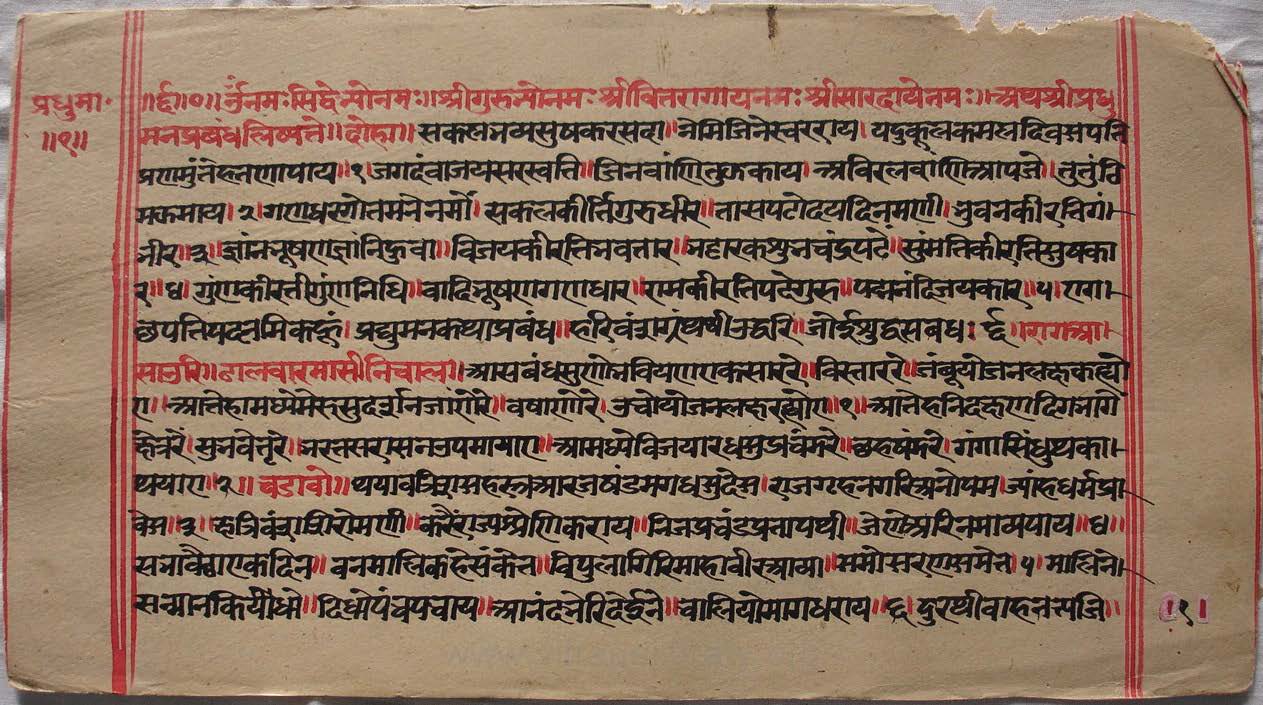 प्रद्युमा॰ ॥१॥
॥र्द॥०॥ र्नुंनमःसिद्वेभ्योनमः॥श्रीगुरुभ्योनमः श्रीवितरागायनमः श्रीसारदायेनमः॥अथश्रीप्रद्यु
मनप्रबंधलिष्यते॥दोहा॥सकलभव्यसुषकरसदा।नेमिजिनेस्वरराय।यदुकूलकमलदिवसपति
प्रणमुंतेहतणापाय॥१जगदंबाजयसरस्वति॥जिनवांणितुझकाय।अविरलवांणिआपजे॥तुतुंठि
मझमाय।२।गणधरगोतमनेनमों।सकलकीर्त्तिगुरुधीर॥तासपटोदयदिनमणी।भुवनकीरतिगं।
भीर॥३॥ज्ञांनभूषणज्ञांनिहुवा॥विजयकीरत्तिभवतार॥भट्टारकशुभचंद्रपटे॥सुंमतिकीरतिसुषका
र॥४॥गुंणकीरतीगुंणनिधि॥वादिभूषणगणधार॥रामकीरतिपटेगुरु॥पद्मनंदिजयकार॥५।राग।
छपतिपदनमिकहूं।प्रद्युमनकथाप्रबंध॥हरिवंशग्रंथथीउद्धरि॥जोईशुद्धसबध:६॥रागआ।
साउरि॥ढालबारमासीनिचाल॥आसबंधसुणोभवियणएकसाररे॥विस्ताररे॥जंबूयोजनलक्षकह्यो
ए॥आतेहामध्येमेरुसुदर्शनजांणोरे॥वषाणोरे।उचोयोजनलक्षरह्योए॥१॥आतेहनिदक्षणदिगभागे
क्षेत्ररे॥भुनवेतृरे॥भरतसरासनउपमायाए॥आमध्येविजयारधषंडरे॥छहषंडरे।गंगासिंधुथका।
थयाए॥२॥चडावो॥थयावत्रिससहस्त्रआरजषंडमगधसुदेस।राजगृहनगरिअनोपम।ज्यांहधर्मप्रा
वेस॥३॥क्षत्रिवंशशिरोमणी॥करैंराज्यश्रेणिकराय॥निजप्रचंडप्रतापथी॥जेणेअरिनमाव्यपाय॥४॥
सभाबैठाएकदिन॥वनमालिकहेसंकेत॥विपुलागिरिमाहावीरआया॥समोसरणसमेत।५।मालिने।
सन्मानकियोघणो॥दिधोपंचपचाय॥आनंदभेरिदेईने॥चालियोमागधराय॥६।दुरथीवाहनत्यजि॥
।१।